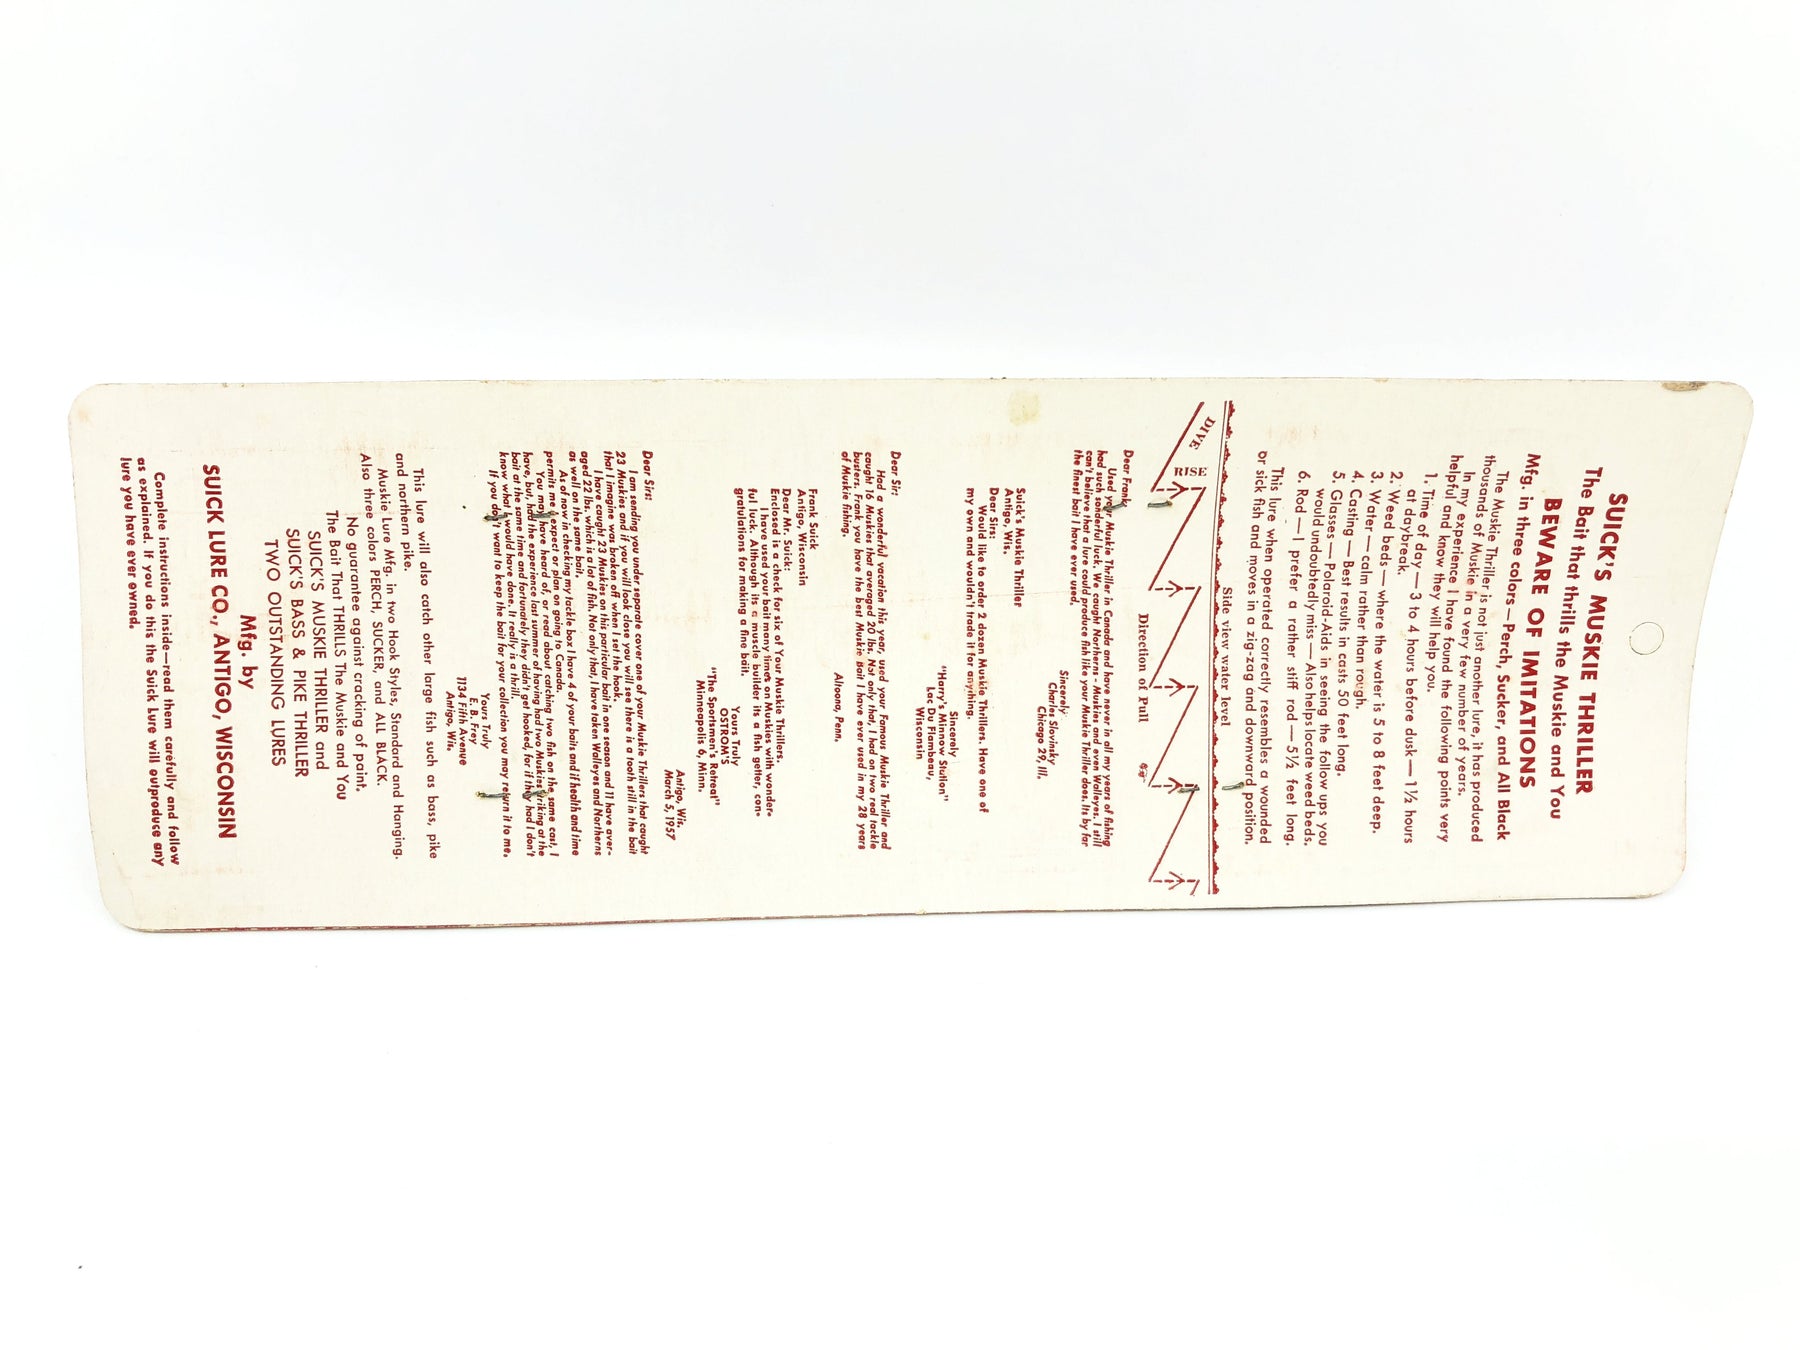 SUICK'S MUSKIE THRILLER
The Bait that thrills the Muskie and You
BEWARE OF IMITATIONS
Mfg. in three colors—Perch, Sucker, and All Black
The Muskie Thriller is not just another lure, it has produced
thousands of Muskie in a very few number of years.
In my experience I have found the following points very
helpful and know they will help you.
1. Time of day—3 to 4 hours before dusk—1½ hours
at daybreak.
2. Weed beds—where the water is 5 to 8 feet deep.
3. Water—calm rather than rough.
4. Casting—Best results in casts 50 feet long.
5. Glasses—Polaroid-Aids in seeing the follow ups you
would undoubtedly miss—Also helps locate weed beds.
6. Rod—I prefer a rather stiff rod—5½ feet long.
This lure when operated correctly resembles a wounded
or sick fish and moves in a zig-zag and downward position.
Side view water level
DIVE
RISE
Direction of Pull
Dear Frank
Used your Muskie Thriller in Canada and have never in all my years of fishing
had such wonderful luck. We caught Northerns - Muskies and even Walleyes. I still
can't believe that a lure could produce fish like your Muskie Thriller does. Its by far
the finest bait I have ever used.
Sincerely
Charles Slovinsky
Chicago 29, Ill.
Suick's Muskie Thriller
Antigo, Wis.
Dear Sirs:
Would like to order 2 dozen Muskie Thrillers. Have one of
my own and wouldn't trade it for anything.
Sincerely
"Harry's Minnow Station"
Lac Du Flambeau,
Wisconsin
Dear Sir:
Had a wonderful vacation this year, used your Famous Muskie Thriller and
caught 16 Muskies that averaged 20 lbs. Not only that, I had on two real tackle
busters. Frank you have the best Muskie Bait I have ever used in my 28 years
of Muskie fishing.
Altoona, Penn.
Frank Suick
Antigo, Wisconsin
Dear Mr. Suick:
Enclosed is a check for six of Your Muskie Thrillers.
I have used your bait many times on Muskies with wonder-
ful luck. Although its a muscle builder its a fish getter, con-
gratulations for making a fine bait.
Yours Truly
OSTROM'S
"The Sportsmen's Retreat"
Minneapolis 6, Minn.
Antigo, Wis.
March 5, 1957
Dear Sirs:
I am sending you under separate cover one of your Muskie Thrillers that caught
23 Muskies and if you will look close you will see there is a tooth still in the bait
that I imagine was broken off when I set the hooks.
I have caught 23 Muskies on this particular bait in one season and 11 have aver-
aged 22 lbs. which is a lot of fish. Not only that, I have taken Walleyes and Northerns
as well on the same bait.
As of now in checking my tackle box I have 4 of your baits and if health and time
permits me I expect or plan on going to Canada.
You may have heard of, or read about catching two fish on the same cast, I
have, but, had the experience last summer of having had two Muskies striking at the
bait at the same time and fortunately they didn't get hooked, for if they had I don't
know what I would have done. It really is a thrill.
If you don't want to keep the bait for your collection you may return it to me.
Yours Truly
E. B. Frey
1134 Fifth Avenue
Antigo, Wis.
This lure will also catch other large fish such as bass, pike
and northern pike.
Muskie Lure Mfg. in two Hook Styles, Standard and Hanging.
Also three colors PERCH, SUCKER, and ALL BLACK.
No guarantee against cracking of paint.
The Bait That THRILLS The Muskie and You
SUICK'S MUSKIE THRILLER and
SUICK'S BASS & PIKE THRILLER
TWO OUTSTANDING LURES
Mfg. by
SUICK LURE CO., ANTIGO, WISCONSIN
Complete instructions inside—read them carefully and follow
as explained. If you do this the Suick Lure will outproduce any
lure you have ever owned.